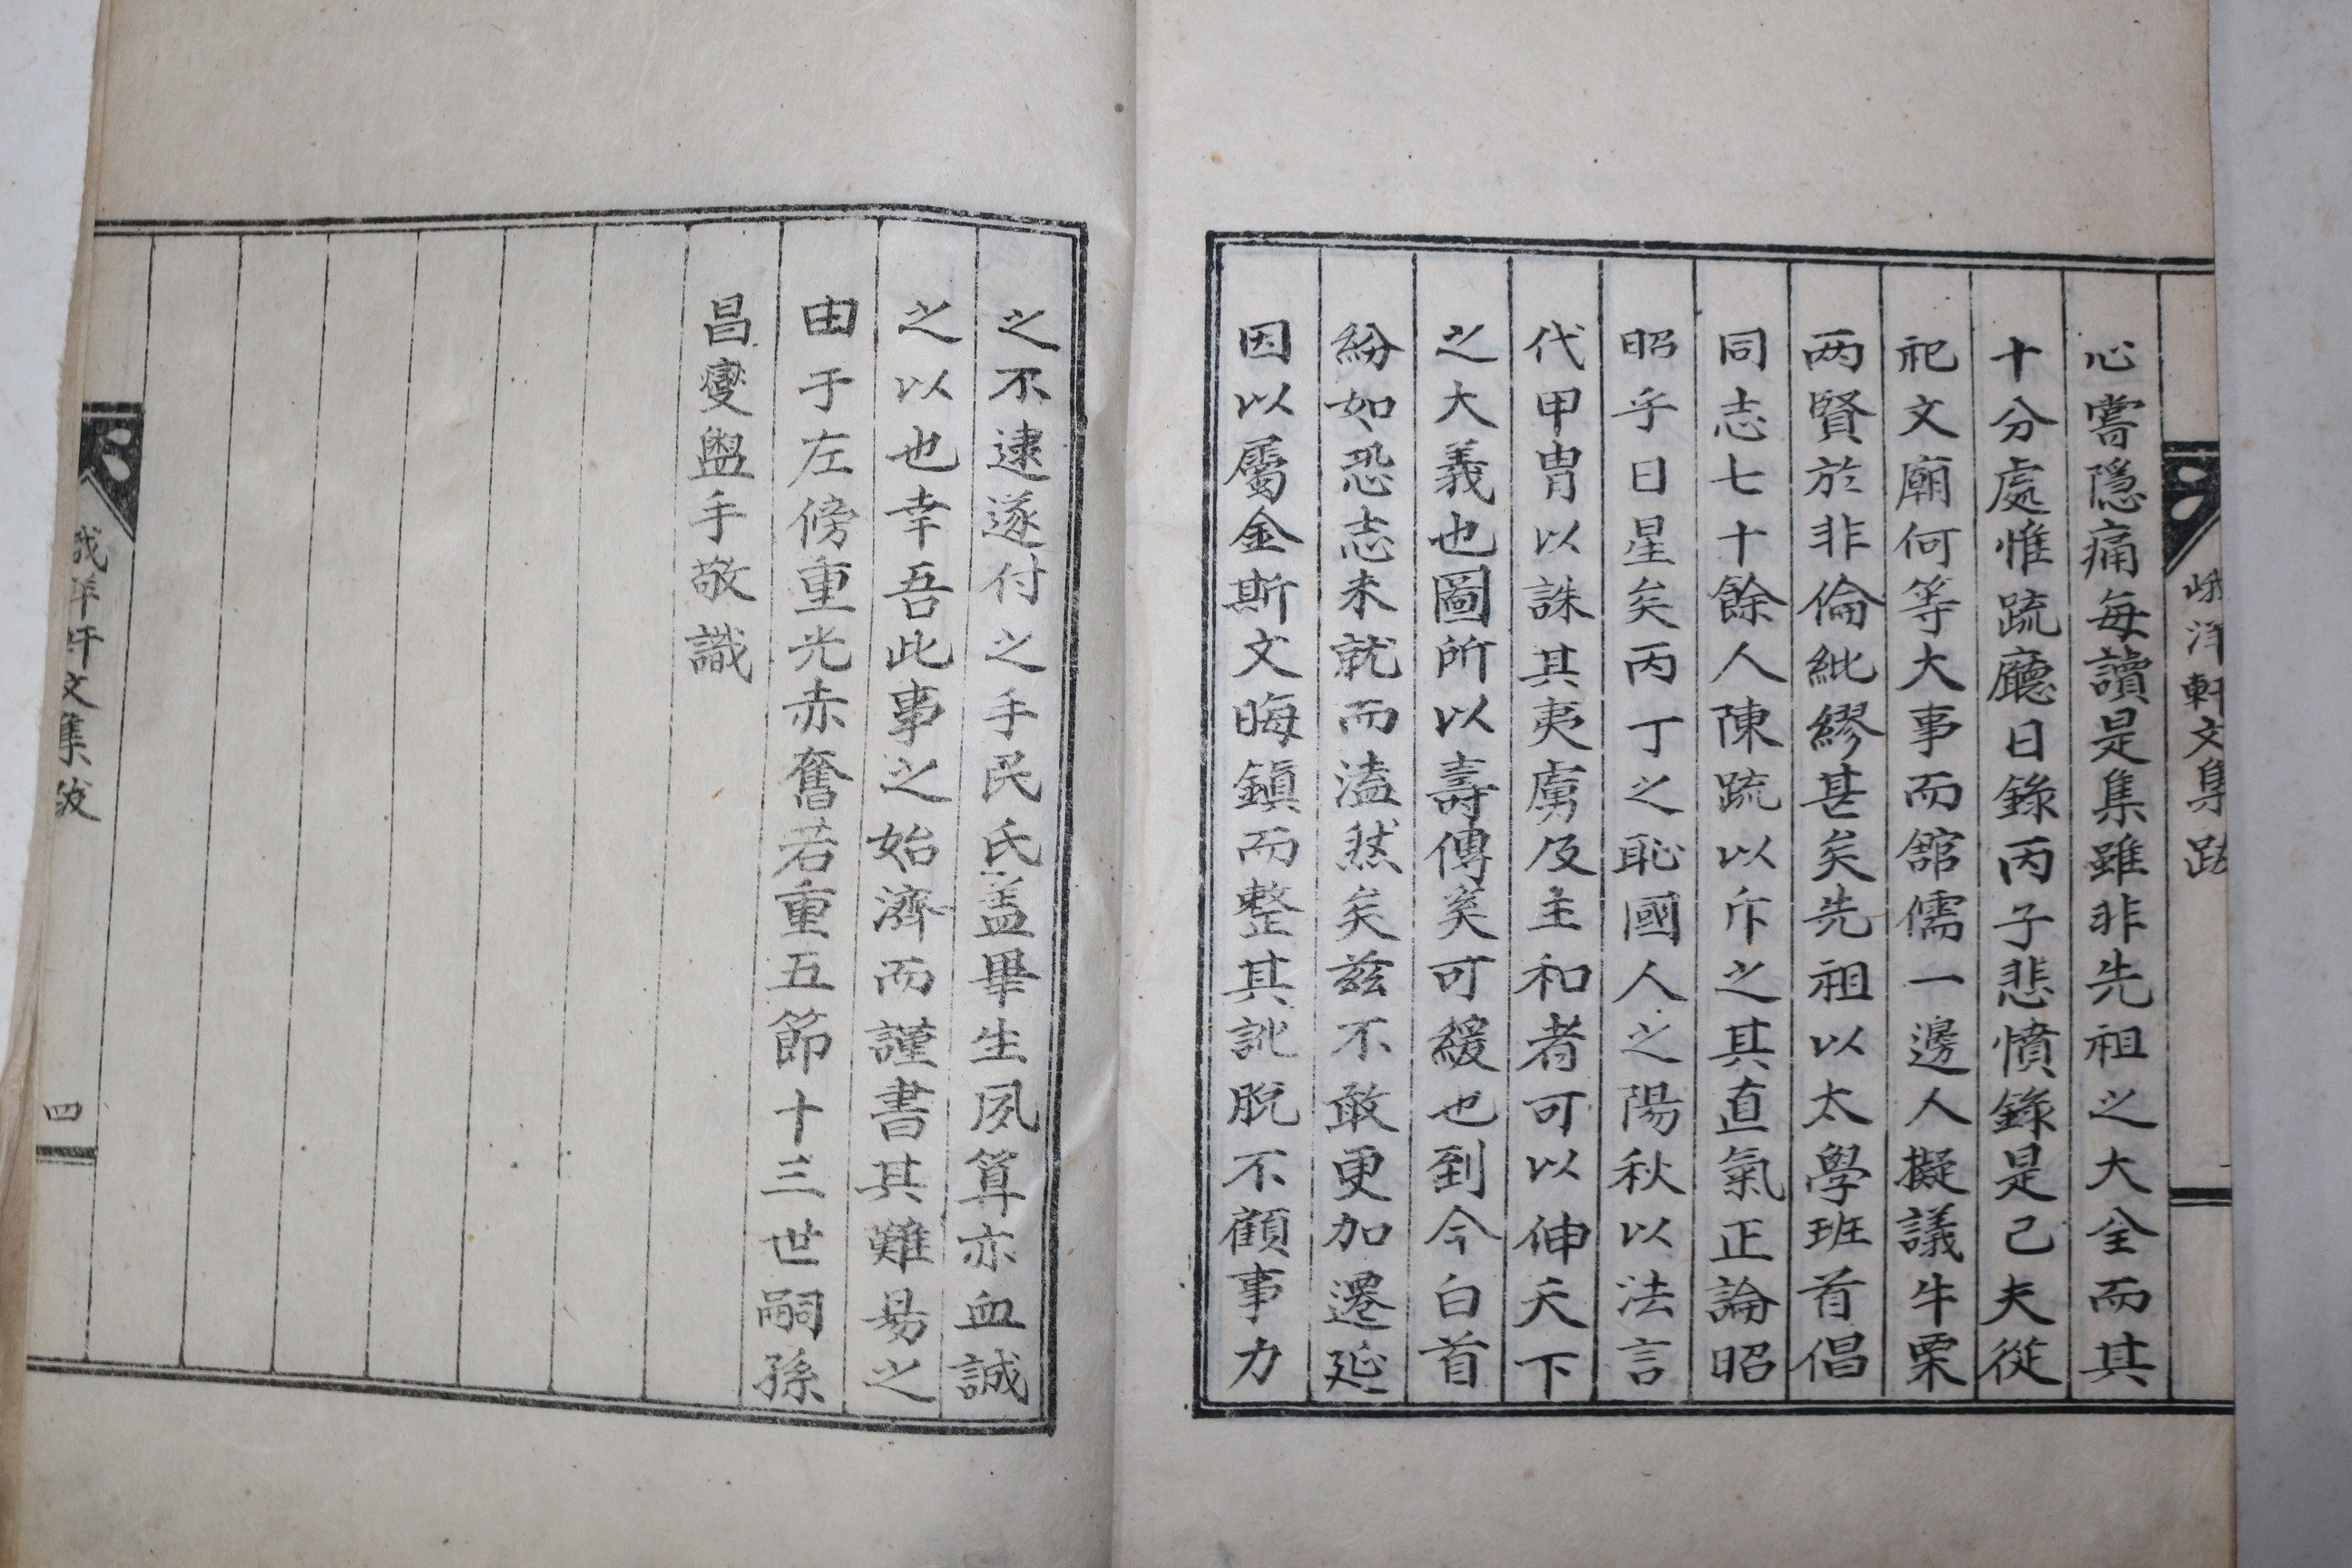 峨洋軒文集跋
心嘗隱痛每讀是集雖非先祖之大全而其
十分處惟䟽廳日錄丙子悲憤錄是已夫從
祀文廟何等大事而舘儒一邊人擬議牛栗
两賢於非倫紕繆甚矣先祖以太學班首倡
同志七十餘人陳䟽以斥之其直氣正論昭
昭乎日星矣丙丁之恥國人之陽秋以法言
代甲冑以誅其夷虜及主和者可以伸天下
之大義也圖所以壽傳奚可緩也到今白首
紛如恐志未就而溘然矣玆不敢更加遷延
因以屬金斯文晦鎭而整其訛脫不顧事力
之不逮遂付之手民氏盖畢生夙算亦血誠
之以也幸吾此事之始濟而謹書其難易之
由于左傍重光赤奮若重五節十三世嗣孫
昌燮盥手敬識
峨洋軒文集跋
四